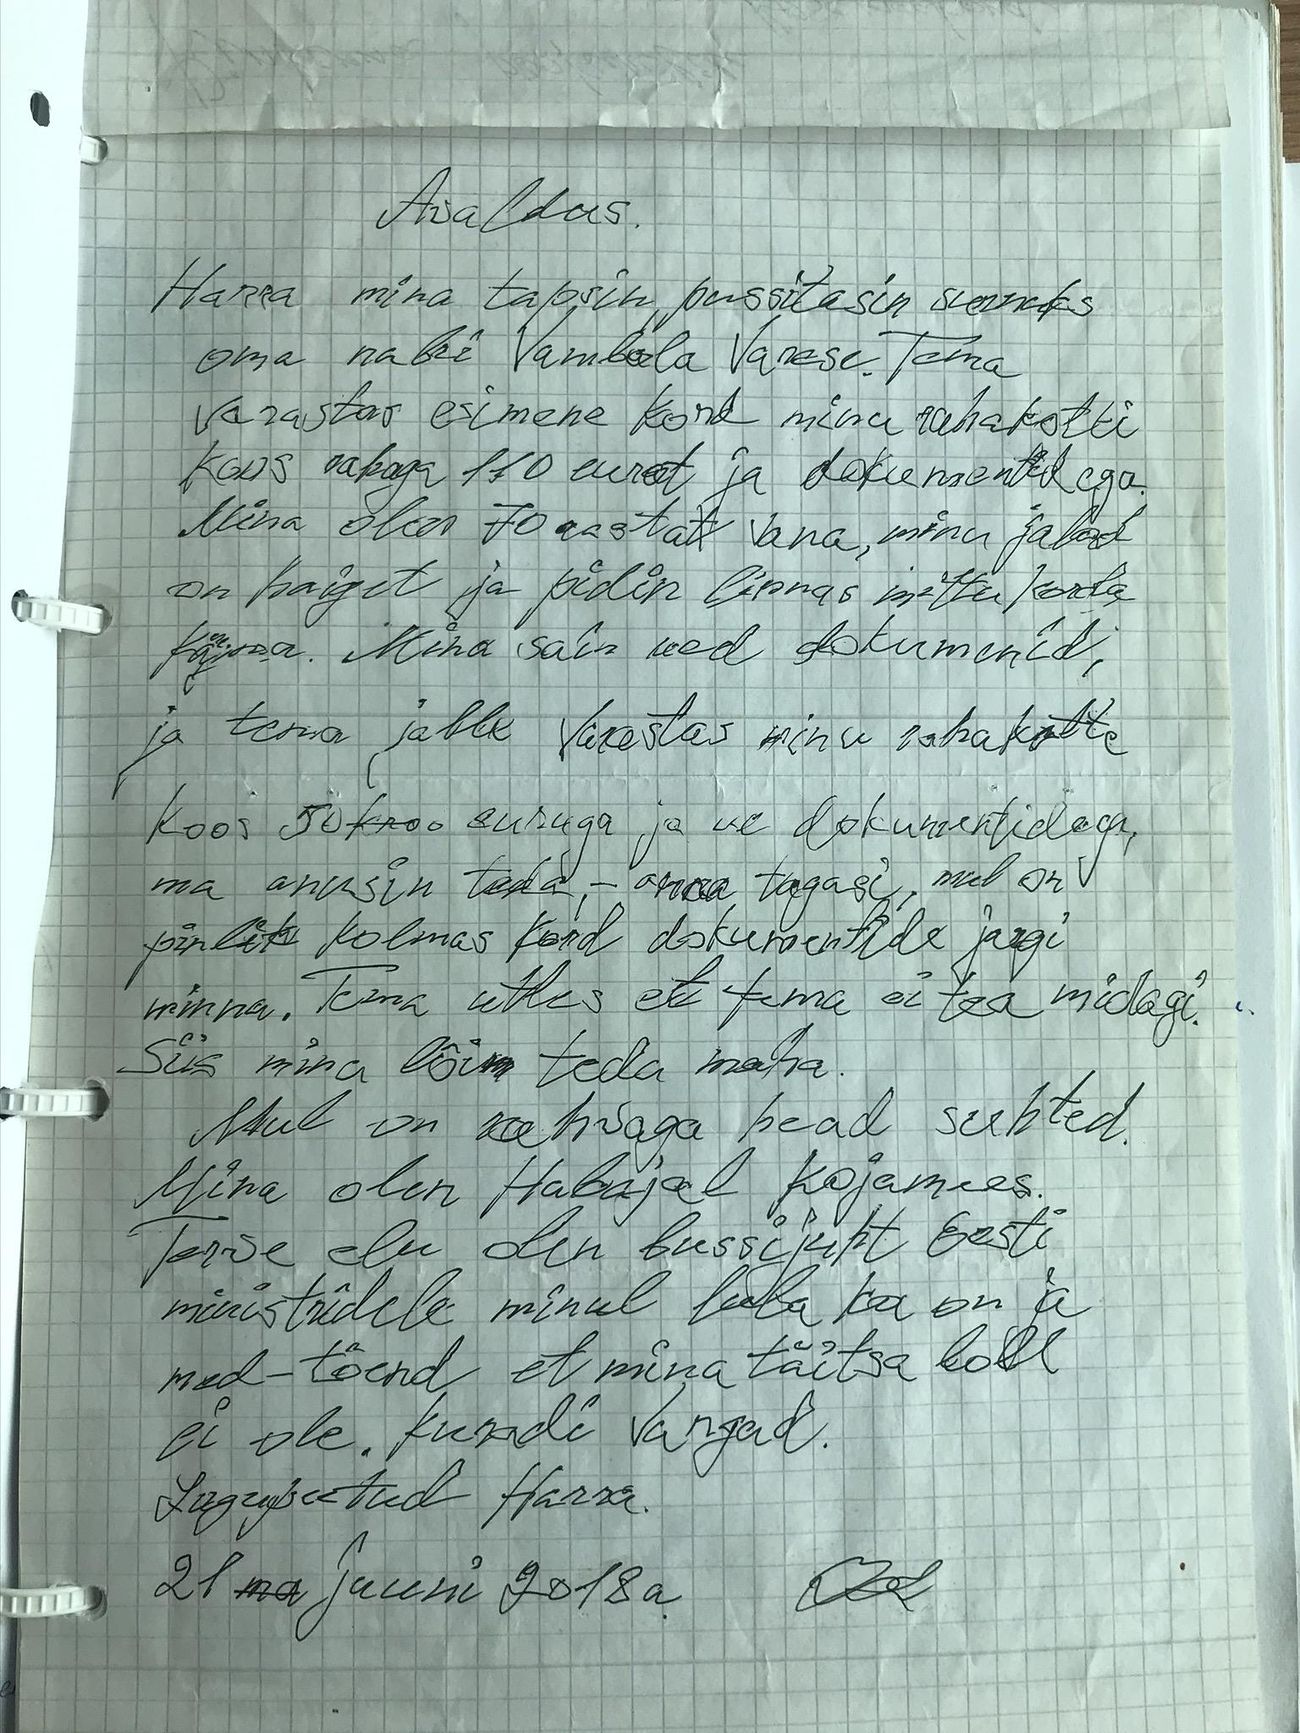 Avaldus.
Harra mina tapsin, pussitasin surnuks
oma nabri Vambola Varese. Tema
Varastas esimene kord minu rahakotti
koos rahaga 110 eurot ja dokumentidega.
Mina olen 70 aastat vana, minu jalad
on haiget ja pidin linnas mittu korda
käima. Mina sain uued dokumenid,
ja tema jälle Varastas minu rahakotte
Koos 50 euruga ja ue dokumentidega,
ma anusin teda, - anna tagasi, mul on
pinlik kolmas kord dokumentide jargi
minna. Tema utles et tema ei tea midagi.
Siis mina lõin teda maha.
Mul on rahvaga head suhted.
Mina olen Habajal kojamees.
Terve elu olen bussijuht Eesti
ministridele minul luba ka on ja
med-tõend et mina täitsa loll
ei ole. Kuradi Vargad.
Lugupeetud Harra.
21 ma juuni 2018a.